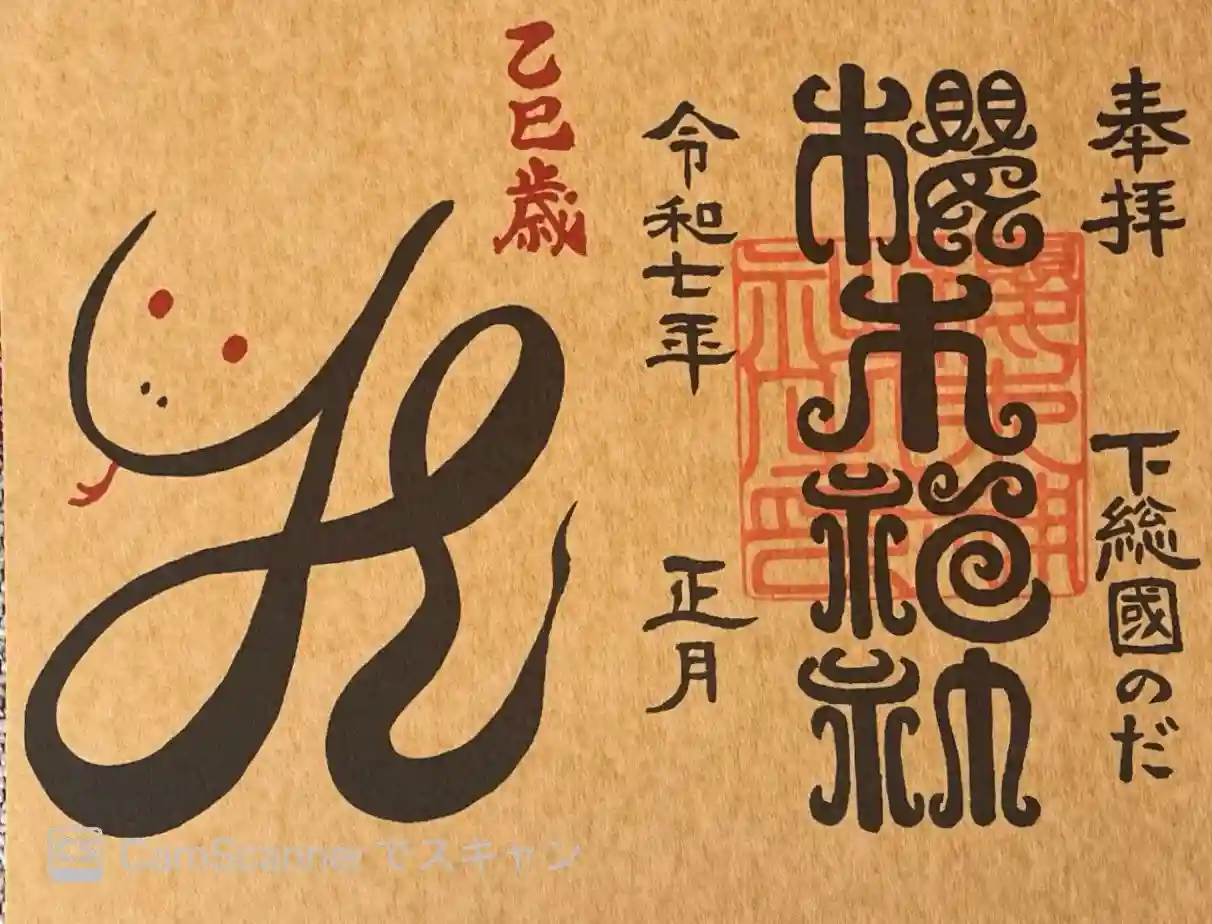 奉拝 下総國のだ
櫻木神社
令和七年 正月
乙巳歳
CS CamScannerでスキャン